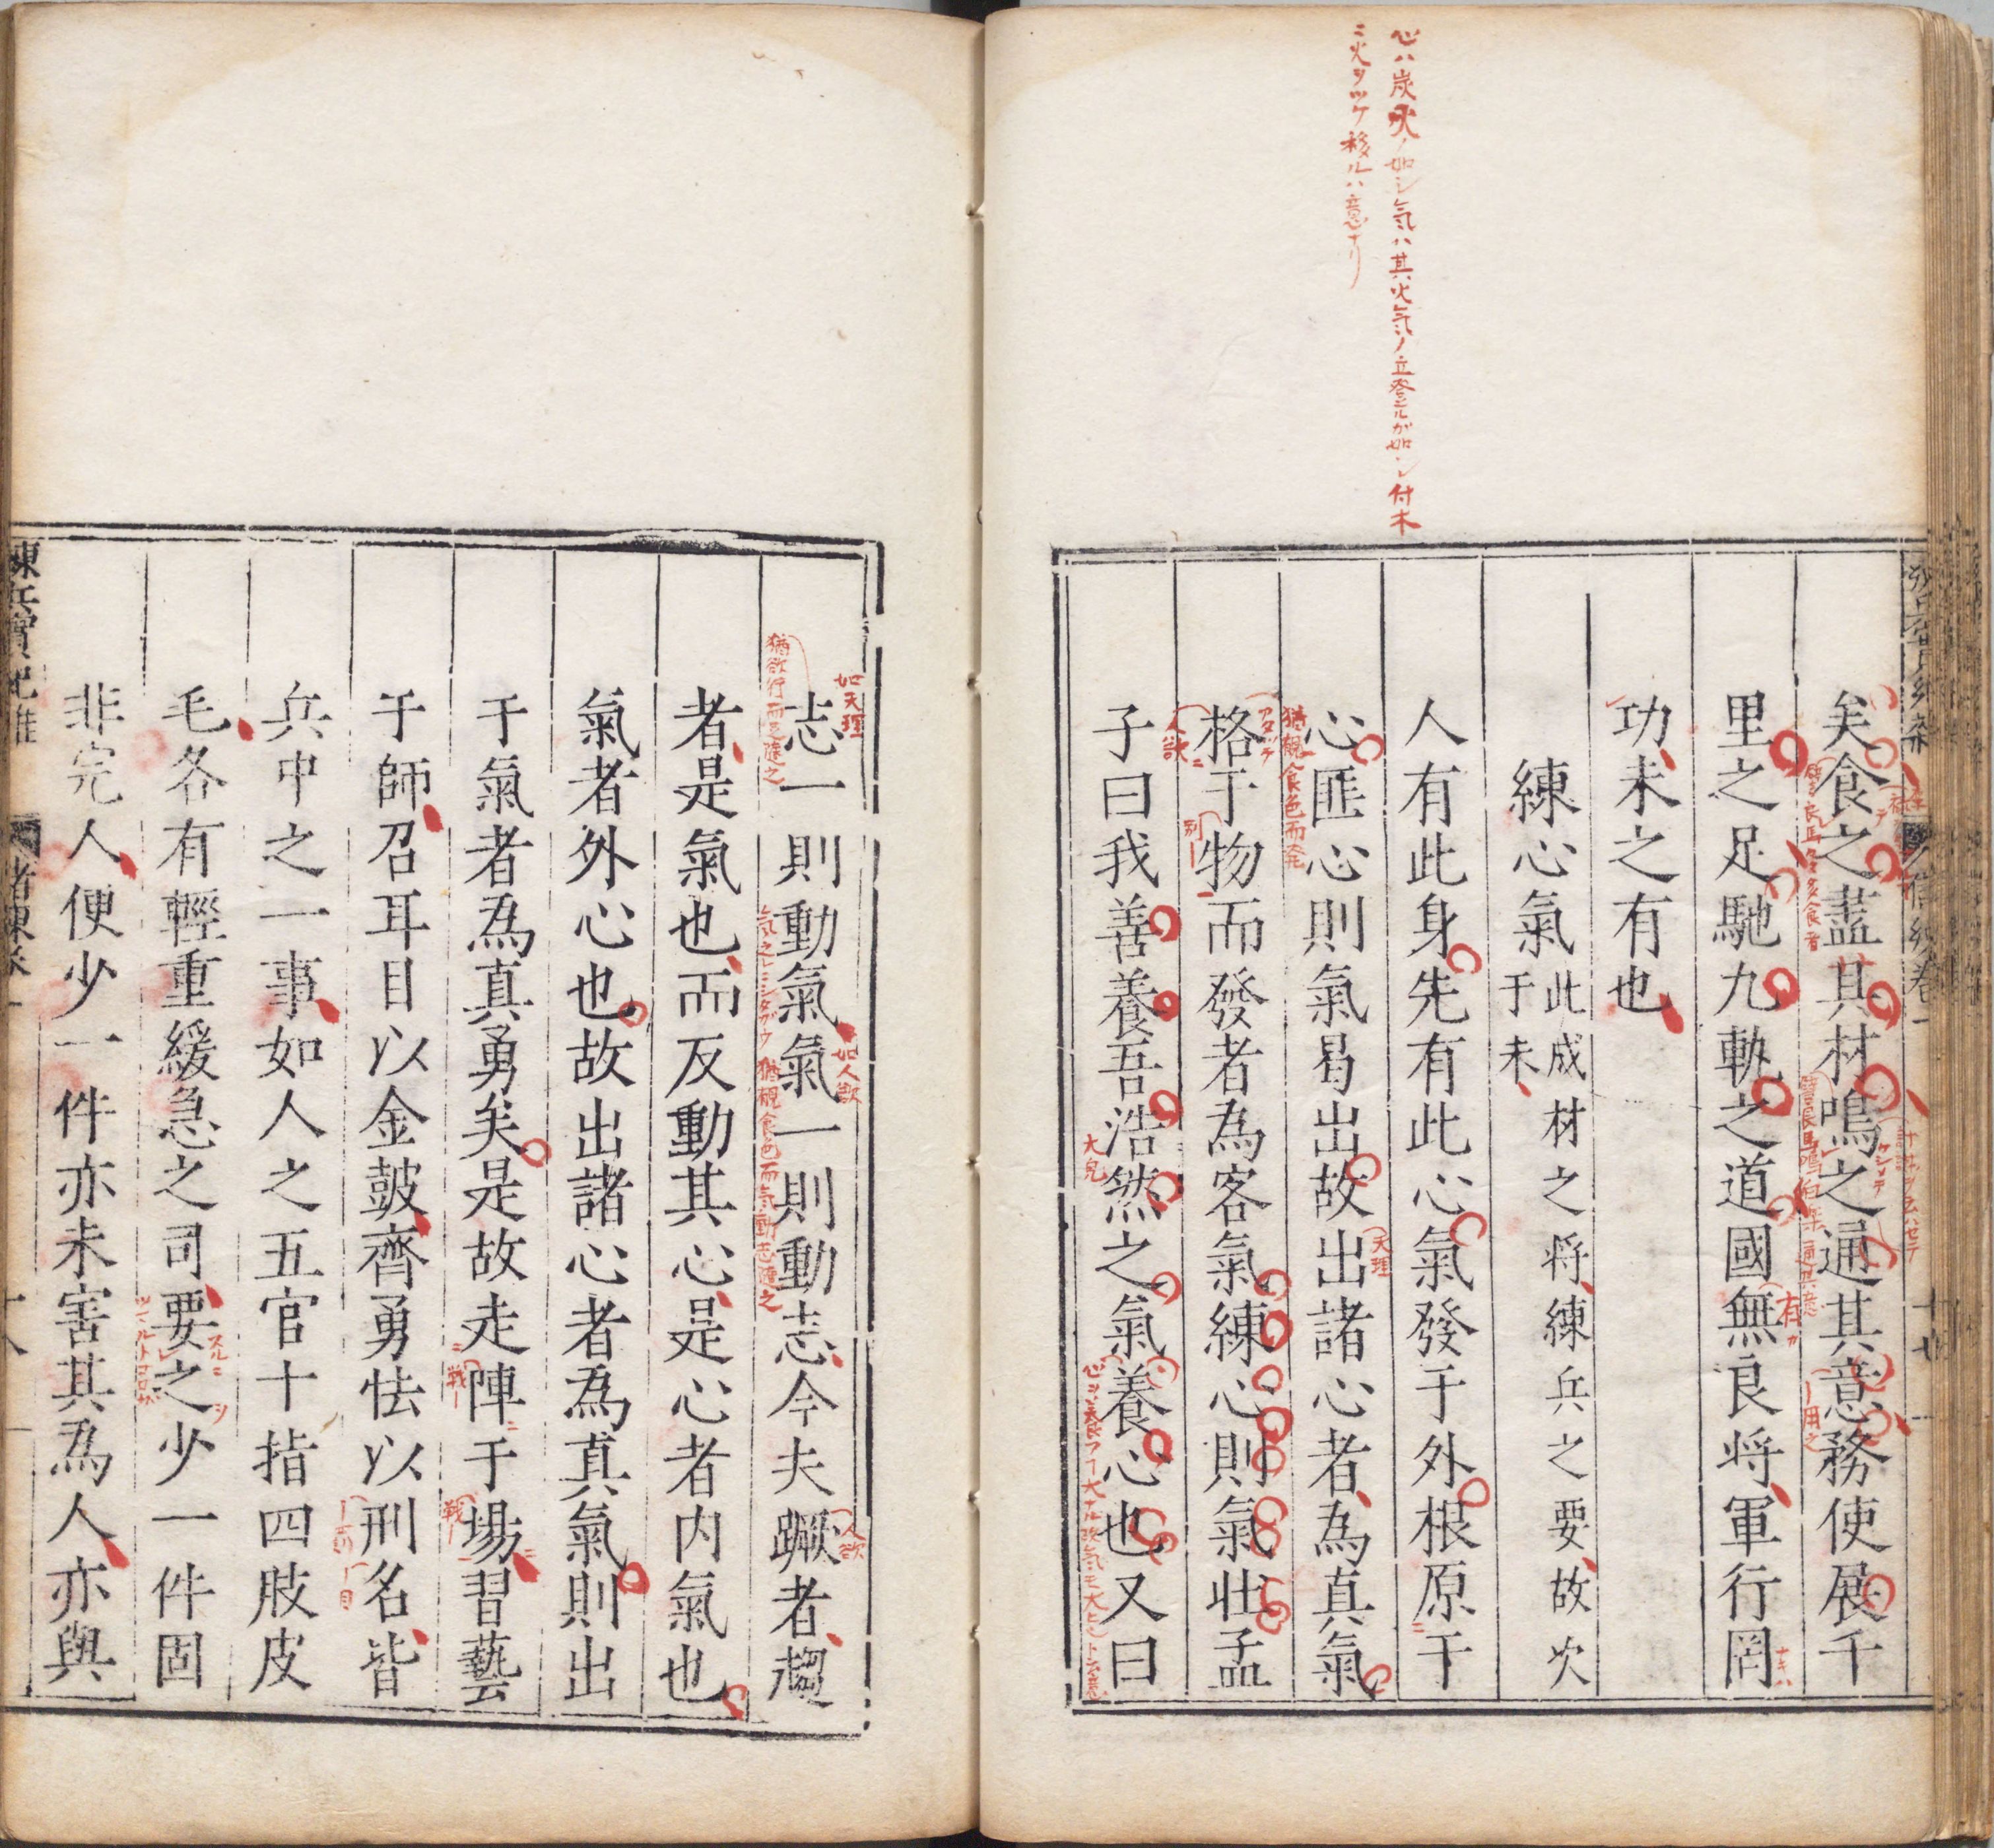 心ハ炭火ノ如シ気ハ其火気ノ立登ルガ如シ付木
ニ火ヲツケ移ルハ意ナリ
矣食之盡其材鳴之通其意務使展千
里之足馳九軌之道國無良将軍行罔
功未之有也
練心氣
此成材之将練兵之要故次
于未
人有此身先有此心氣發于外根原于
心匪心則氣曷出故出諸心者為真氣
格于物而發者為客氣練心則氣壯孟
子曰我善養吾浩然之氣養心也又曰
志一則動氣氣一則動志今夫蹶者趨
者是氣也而反動其心是心者内氣也
氣者外心也故出諸心者為真氣則出
于氣者為真勇矣是故走陣于場習藝
于師召耳目以金鼓齊勇怯以刑名皆
兵中之一事如人之五官十指四肢皮
毛各有輕重緩急之司要之少一件固
非完人便少一件亦未害其為人亦與
如天理
猶欲行而足随之
如人欲
猶覩食色而氣動志随之
人欲
天理
人欲
猶覩食色而発
大皃